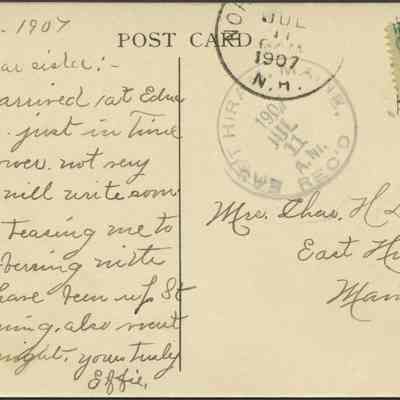 1907
POST CARD
ar sister:-
arrived at Edna
just in Time
ower. not very
will write som
teasing me to
have been up St
ning, also went
night, yours truly
Effie.
NO
JUL
11
1907
N.H.
EAST HIRAM, MAINE.
1907
JUL
11
A.M.
REC'D
Mrs. Chas. H
East Hi
Main